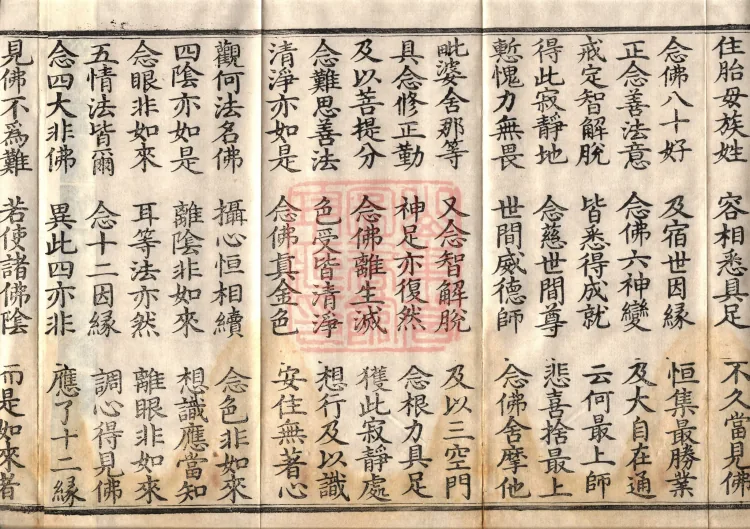 住胎母族姓 容相悉具足 不久當見佛
念佛八十好 及宿世因緣 恒集最勝業
正念善法意 念佛六神變 及大自在通
戒定智解脫 皆悉得成就 云何最上師
得此寂靜地 念慈世間尊 悲喜捨最上
慙愧力無畏 世間威德師 念佛舍摩他
毗婆舍那等 又念智解脫 及以三空門
具念修正勤 神足亦復然 念根力具足
及以菩提分 念佛離生滅 獲此寂靜處
念難思善法 色受皆清淨 想行及以識
清淨亦如是 念佛真金色 安住無著心
觀何法名佛 攝心恒相續 念色非如來
四陰亦如是 離陰非如來 想識應當知
念眼非如來 耳等法亦然 離眼非如來
五情法皆爾 念十二因緣 調心得見佛
念四大非佛 異此四亦非 應了十二緣
見佛不為難 若使諸佛陰 而是如來者